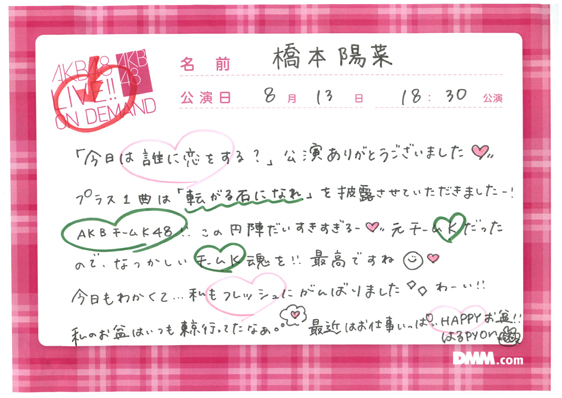 AKB48
LIVE!!
ON DEMAND
AKB
48
名前 橋本陽菜
公演日 8月13日 18:30公演
「今日は誰に恋をする?」公演ありがとうございました
プラス1曲は「転がる石になれ」を披露させていただきましたー!
AKBチームK48!! この円陣だいすきすぎるー 元チームKだった
ので、なつかしいチームK魂を!! 最高ですね
今日もわかくて…私もフレッシュにがんばりました わーい!!
私のお盆はいつも東京行ってたなぁ。。 最近はお仕事いっぱい HAPPYお盆!!
はるPYON
DMM.com